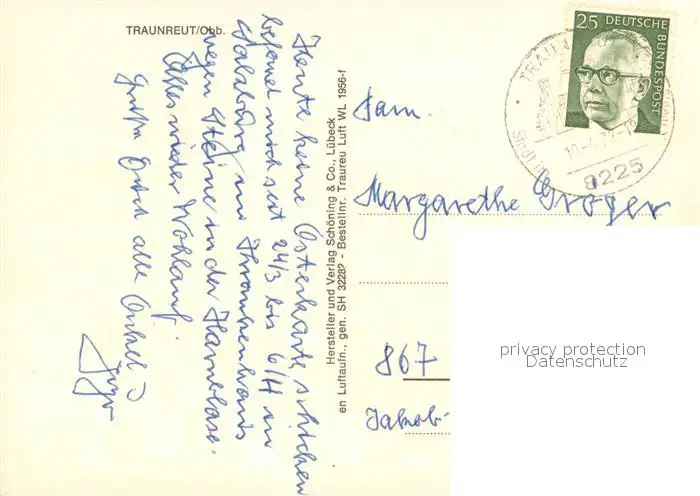 TRAUNREUT/Obb.
Heute keine Osterkarte, schicken
befand mich seit 24/3 bis 6/4 im
Salzburg im Krankenhaus
wegen Steine in der Harnblase.
Alles wieder Wohlauf.
Grüße Euch alle Onkel
Hersteller und Verlag Schöning & Co., Lübeck
en Luftaufn., gen. SH 3228? - Bestellnr. Traureu Luft WL 1956-f
25 DEUTSCHE BUNDESPOST
8225
Fam.
Margarethe Gröger
867
Jakob-
privacy protection
Datenschutz